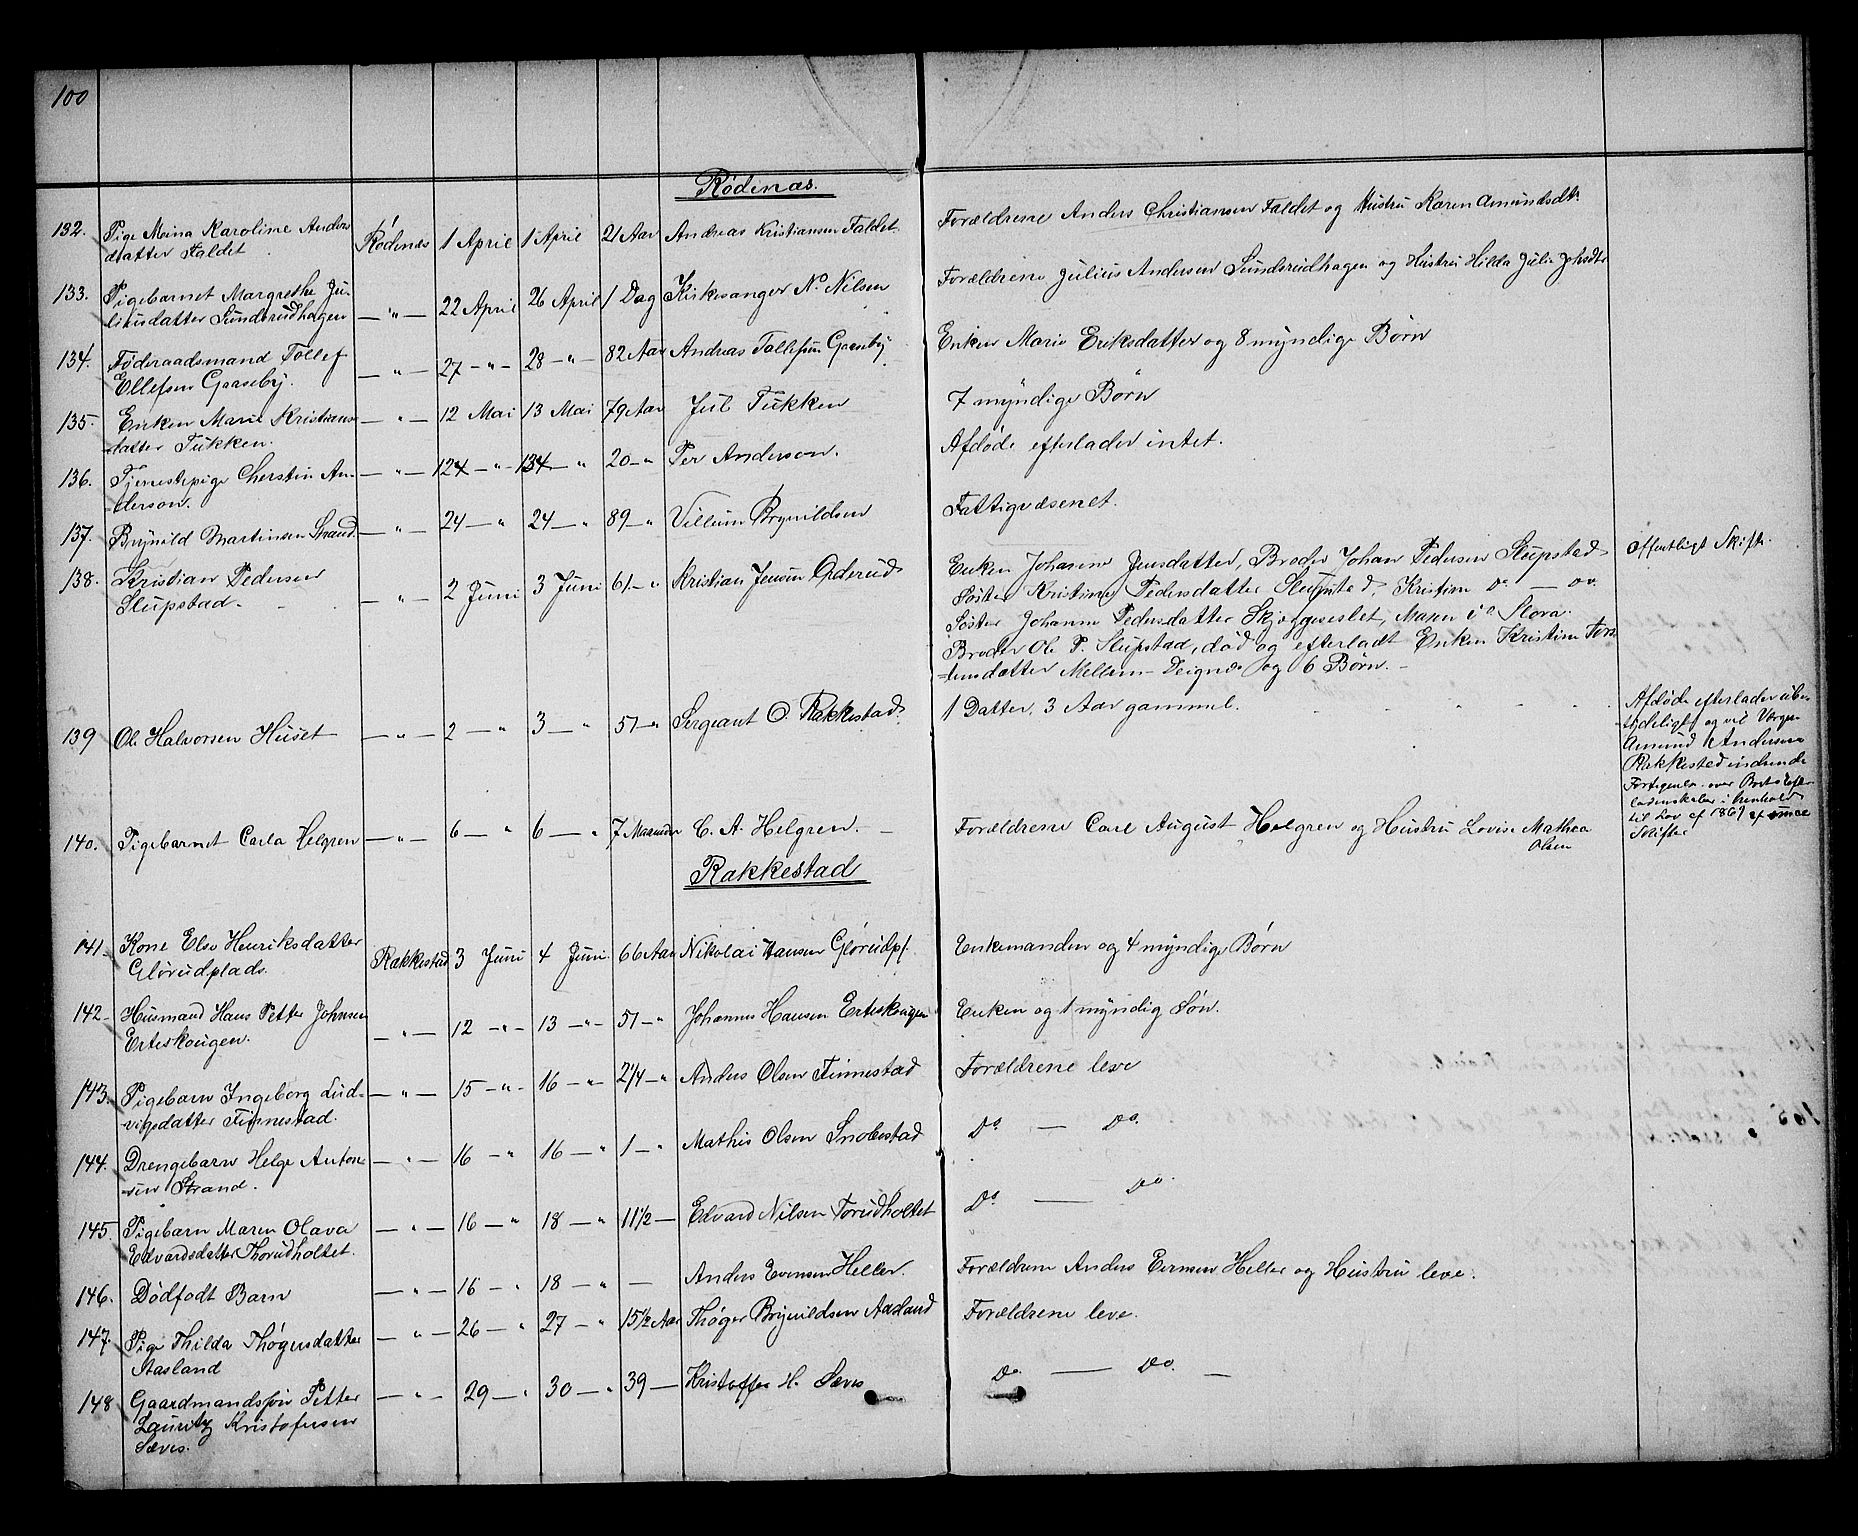 100
Rödenæs.
132. Pige Mina Karoline Anders Rödenæs 1 April 1 April 21 Aar Andreas Kristiansen Faldet. Forældrene Anders Christiansen Faldet og Hustru Karen Amundsdtr
datter Faldet.
133. Pigebarnet Margrethe Ju- — " — 22 April 26 April 1 Dag Kirkesanger N. Nilsen Forældrene Julius Andersen Sundsrudhagen og Hustru Hilda Juli Johsdtr
liusdatter Sundsrudhagen
134. Föderaadsmand Tollef — " — 27 — " — 28 — " — 82 Aar Andreas Tollefsen Gaaseby Enken Marie Eriksdatter og 8 myndige Børn
Ellefsen Gaaseby.
135. Enken Marie Kristians — " — 12 Mai 13 Mai 79 Aar Jul Tukken 7 myndige Børn
datter Tukken.
136. Tjenestepige Cherstin An- — " — 12 — " — 13 — " 20 — " Per Anderson. Afdöde efterlader intet.
derson.
137. Brynild Martinsen Strand. — " — 24 — " 24 — " 89 — " Villum Brynildsen Fattigvæsenet.
138. Kristian Pedersen — " — 2 Juni 3 Juni 61 — " Kristian Jensen Opderud Enken Johanne Jensdatter, Broder Johan Pedersen Slupstad Offentligt Skifte.
Slupstad. Söster Kristine Pedersdatter Slupstad, Kristine do — do.
Söster Johanne Pedersdatter Skjæggeseslet, Maren i Slora.
Broder Ole P. Slupstad, död og efterladt Enken Kristine Tors
tensdatter Mellem-Deignæs og 6 Børn. —
139 Ole Halvorsen Huset — " — 2 — " 3 — " 51 — " Sergeant O. Rakkestad. 1 Datter, 3 Aar gammel.
Afdöde efterlader ube-
tydeligt og vil Værgen
Amund Andersen
Rakkestad indsende
Fortegnelse over Bo
ladenskaber i Henhold
til Lov af 1869
Skifter
140. Pigebarnet Carla Helgren — " — 6 — " 6 — " 7 Maaneder C. A. Helgren. — Forældrene Carl August Helgren og Hustru Lovise Mathea
Olsen
Rakkestad
141. Kone Else Henriksdatter Rakkestad 3 Juni 4 Juni. 66 Aar Nikolai Hansen Glörudpl. Enkemanden og 4 myndige Børn
Glörudplads.
142 Husmand Hans Petter Johnsen — " — 12 — " — 13 — " — 51 — " Johannes Hansen Erteskougen Enken og 1 myndig Sön.
Erteskougen.
143. Pigebarn Ingeborg Lud- — " — 15 — " — 16 — " — 2 1/4 — " Anders Olsen Finnestad Forældrene leve
vigsdatter Finnestad.
144. Drengebarn Helge Anton — " — 16 — " 16 — " 1 — " Mathis Olsen Snobestad Do — Do.
sen Strand.
145 Pigebarn Maren Olava — " — 16 — " 18 — " 11 1/2 — Edvard Nilsen Torudholtet Do — Do.
Edvardsdatter Thorudholtet.
146. Dödfödt Barn — " — 16 — " 18 — " — Anders Evensen Heller. Forældrene Anders Evensen Heller og Hustru leve.
147. Pige Thilda Thøgersdatter — " — 26 — " 27 — " 15 1/2 Aar Thøger Brynildsen Aasland Forældrene leve.
Aasland
148 Gaardmandsøn Petter — " — 29 — " 30 — " 39 — Kristoffer H. Sæves Do — Do. —
Lauritz Kristofersen
Sæves.
165